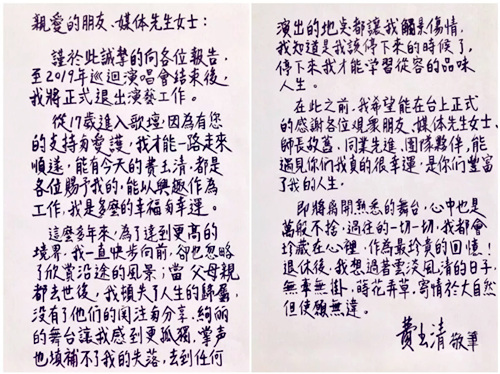 親愛的朋友、媒体先生女士：
謹於此誠摯的向各位報告，
至2019年巡迴演唱會結束後，
我將正式退出演藝工作。
從17歲進入歌壇，因為有您
的支持與愛護，我才能一路走來
順遂，能有今天的費玉清，都是
各位賜予我的，能以興趣作為
工作，我是多麼的幸福與幸運。
這麼多年來，為了達到更高的
境界，我一直快步向前，卻也忽略
了欣賞沿途的風景；當父母親
都去世後，我頓失了人生的歸屬，
沒有了他們的関注與分享，絢麗
的舞台讓我感到更孤獨，掌声
也填補不了我的失落，去到任何
演出的地点都讓我觸景傷情，
我知道是我該停下來的時候了，
停下來我才能学習從容的品味
人生。
在此之前，我希望能在台上正式
的感謝各位現衆朋友、媒体先生女士、
師長故舊、同業先進、团隊夥伴，能
遇見你們我真的很幸運，是你們豐富
了我的人生。
即將離開熟悉的舞台，心中也是
萬般不捨，過往的一切一切，我都會
珍藏在心裡，作為最珍貴的回憶！
退休後，我想過著雲淡風清的日子，
無事無掛，時花弄草，寄情於大自然
但使願無違。
費玉清 敬筆